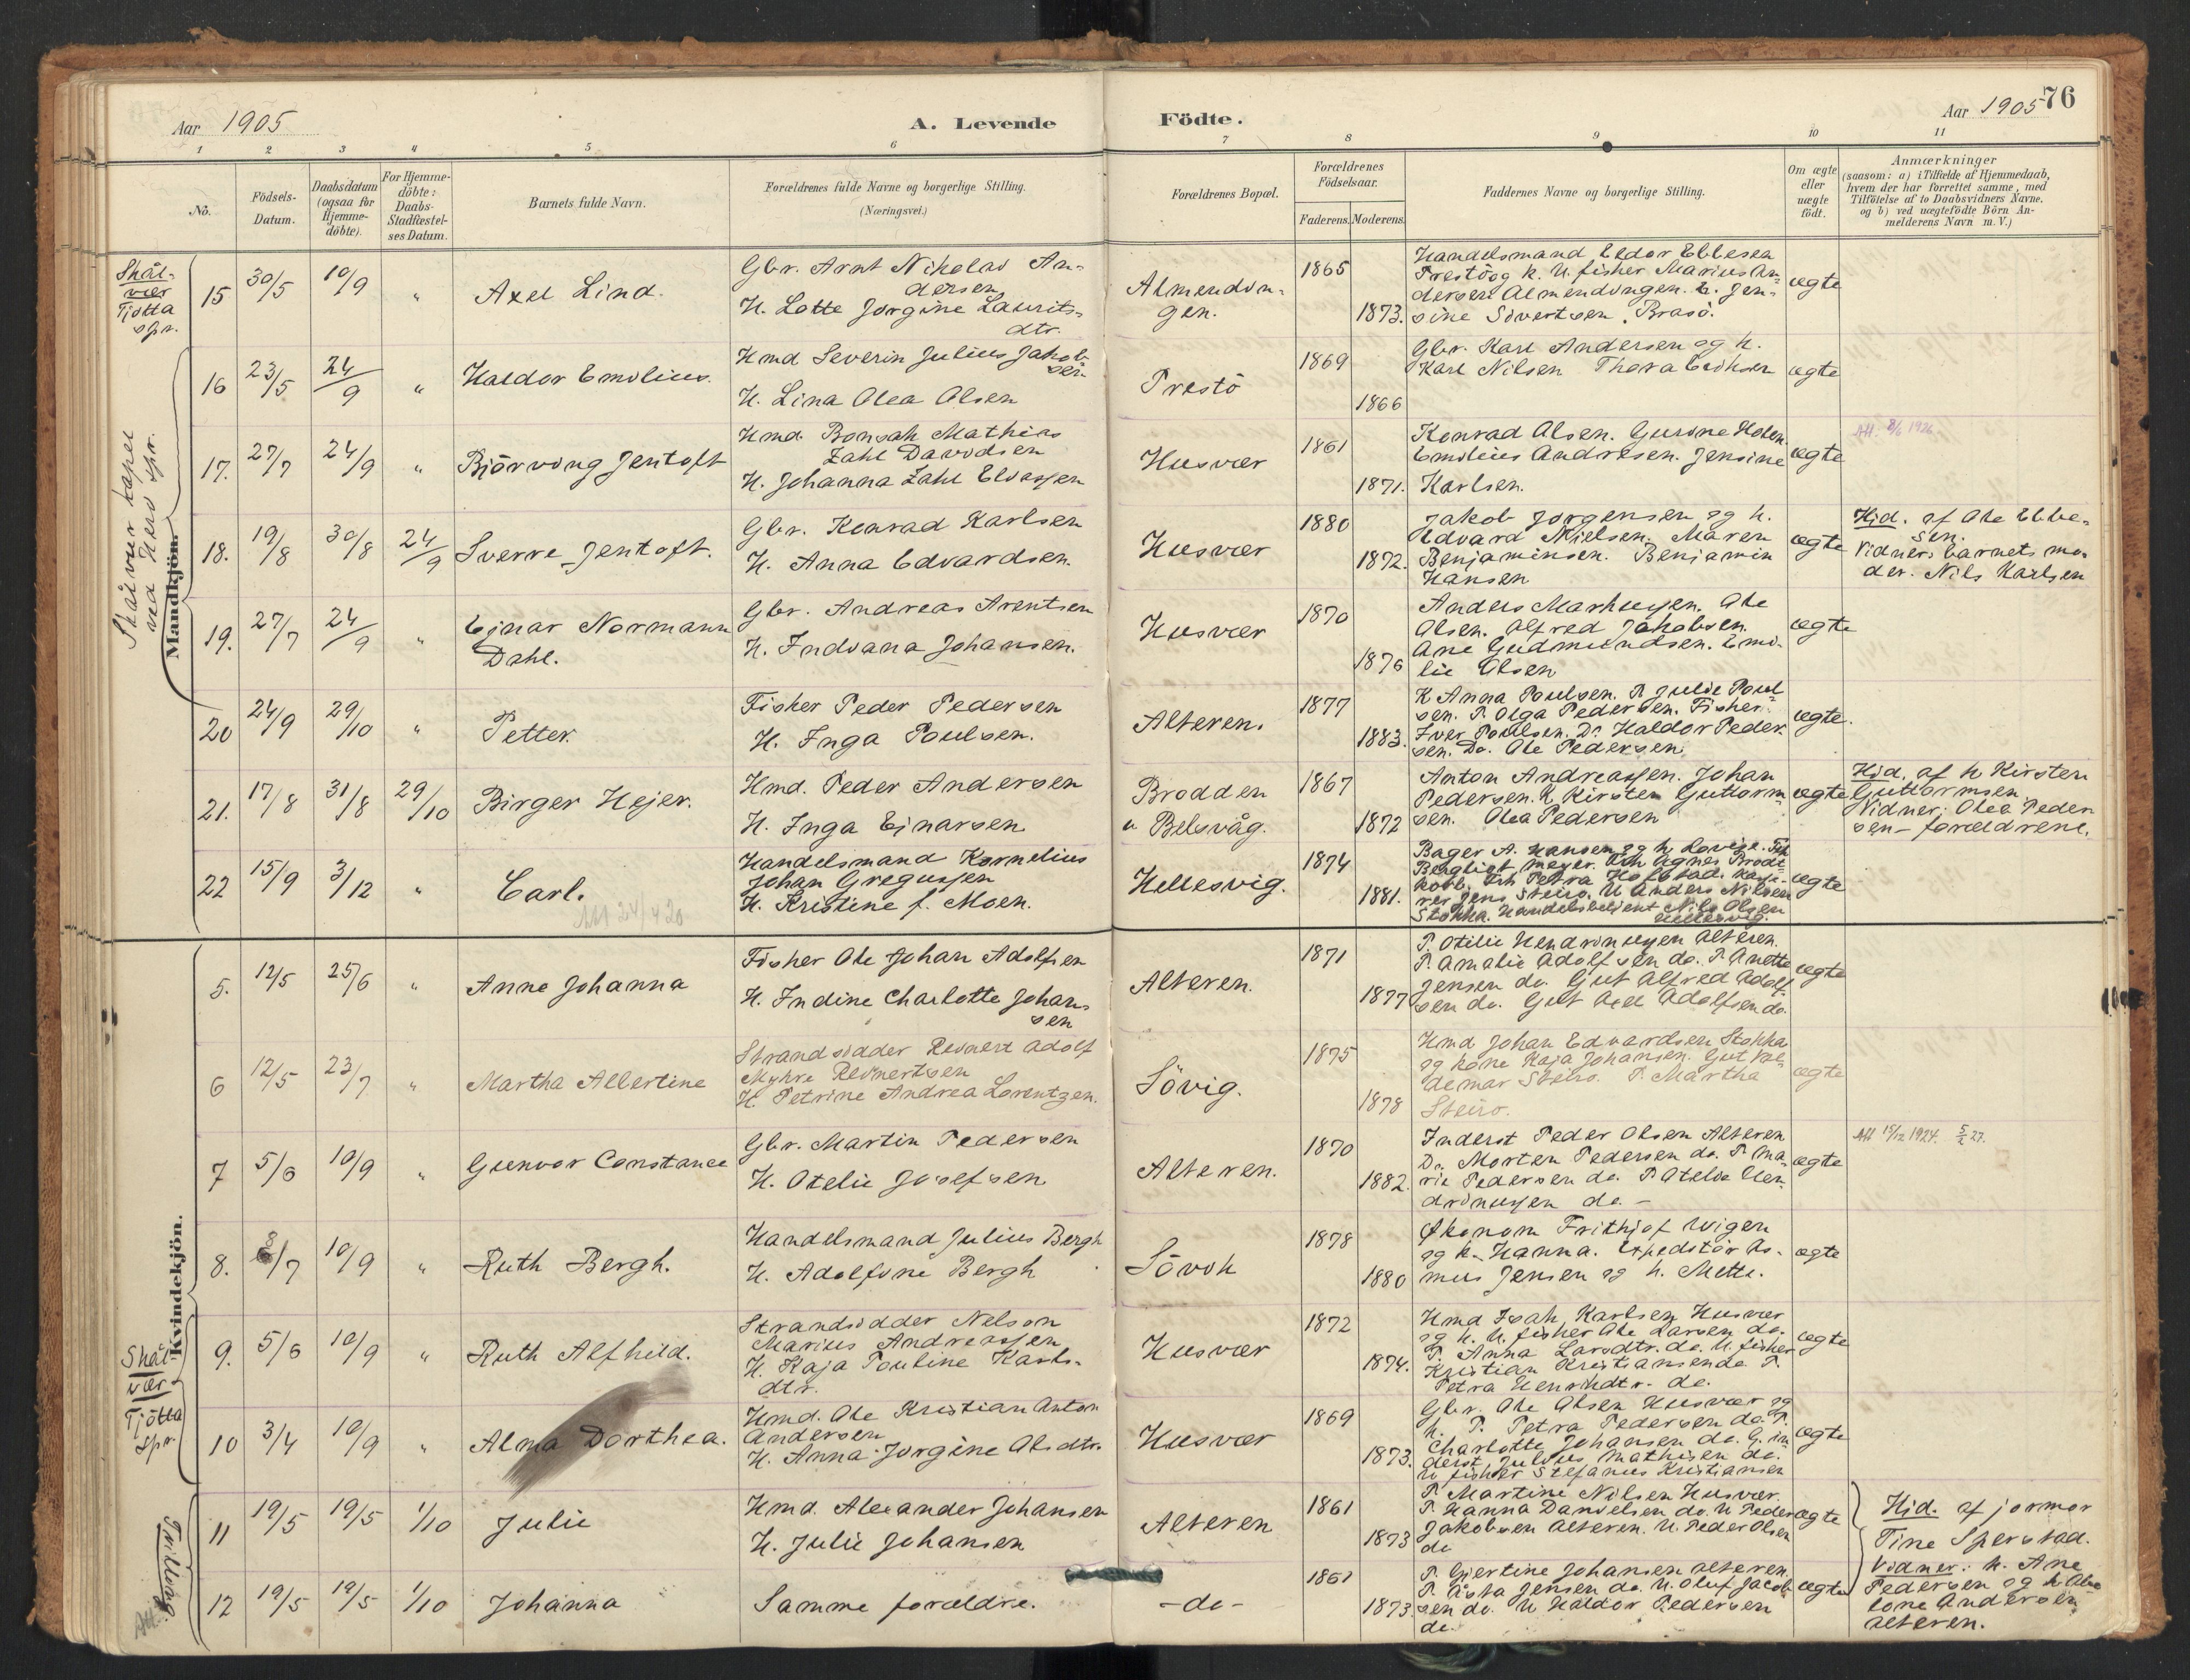 Aar 1905
A. Levende
Födte.
Aar 1905
76
1 2 3 4 5 6 7 8 9 10 11
No.
Födsels-
Datum.
Daabsdatum
(ogsaa for
Hjemme-
döbte).
For Hjemme-
döbte:
Daabs-
Stadfæstel-
ses Datum.
Barnets fulde Navn.
Forældrenes fulde Navne og borgerlige Stilling.
(Næringsvei.)
Forældrenes Bopæl.
Forældrenes
Födselsaar.
Faderens. Moderens.
Faddernes Navne og borgerlige Stilling.
Om ægte
eller
uægte
födt.
Anmærkninger
(saasom: a) i Tilfælde af Hjemmedaab,
hvem der har forrettet samme, med
Tilföielse af to Daabsvidners Navne,
og b) ved uægtefödte Börn An-
melderens Navn m. V.)
Skål-
vær
Tjøtta
spr.
15 30/5 10/9 " Axel Lind.
Gbr. Arnt Nikolai An-
dersen
H. Lotte Jorgine Laurits-
dtr.
Almendin-
gen.
1865
1873.
Handelsmand Eedor Ebbesen
Prestö og k. U. fisher Marius An-
dersen Almendingen. Jen-
sine Sivertsen, Brasö.
ægte
Skålvær kapel
ved Herö spr.
Mandkjön.
16 23/5 24/9 " Haldor Emilius.
Hmd Severin Julius Jakob-
sen
H. Lina Olea Olsen
Prestö
1869
1866
Gbr. Karl Andersen og k.
Karl Nilsen Thora Eriksen
ægte
17. 27/7 24/9 " Björving Jentoft
Hmd. Bonsak Mathias
Zahl Davidsen
H. Johanna Zahl Eliassen
Husvær
1861
1871.
Konrad Olsen. Gurine Holm.
Emilius Andresen. Jensine
Karlsen.
ægte
Att. 8/6 1926
18. 19/8 30/8 24/9 Sverre Jentoft.
Gbr. Konrad Karlsen
H. Anna Edvardsen.
Husvær
1880
1872.
Jakob Jorgensen og h.
Edvard Nielsen. Maren
Benjaminsen. Benjamin
Hansen
ægte
Hjd. af Ole Ebbe-
sen.
Vidner: barnets mo-
der. Nils Karlsen
19. 27/7 24/9 " Ejnar Normann
Dahl.
Gbr. Andreas Arentsen
H. Indiana Johansen.
Husvær
1870
1876
Anders Markussen. Ole
Olsen. Alfred Jakobsen.
Ane Gudmundsen. Emi-
lie Olsen
ægte
20 24/9 29/10 " Petter.
Fisher Peder Pedersen
H. Inga Poulsen.
Alteren.
1877
1883.
K Anna Poulsen. P. Julie Poul
sen. P. Olga Pedersen. Fisher
Iver Poulsen. Do Haldor Peder
sen. Do. Ole Pedersen
ægte.
21. 17/8 31/8 29/10 Birger Hejer.
Hmd. Peder Andersen
H. Inga Ejnarsen
Brodden
u Belsvåg.
1867
1872
Anton Andreassen. Johan
Pedersen. k Kirsten Guttorm-
sen. Olea Pedersen
ægte
Hjd. af k Kirsten
Guttormsen
Vidner: Olea Peder
sen - forældrene.
22 15/9 3/12 " Carl.
Att 24/4 20
Handelsmand Kornelius
Johan Gregussen
H. Kristine f. Moen.
Hellesvig.
1874
1881.
Bager A. Hansen og h. Lovise. Frk
Bergliot Meyer. Frk Agnes Brodt
korb. Frk Petra Hofstad. Kasse-
rer Jens Steiro. U Anders Nilsen
Stokka. Handelsbetjent Nils Olsen
Hellesvig.
ægte
Kvindekjön.
5. 12/5 25/6 " Anne Johanna
Fisher Ole Johan Adolfsen
H. Indine Charlotte Johan-
sen
Alteren.
1871
1877
P. Otilie Hendrinussen Alteren.
P. Amalie Adolfsen do. P. Anette
Jensen do. Gut Alfred Adolf
sen do. Gut Axel Adolfsen do.
ægte
6 12/5 23/7 " Martha Albertine
Strandsidder Reinert Adolf
Myhre Reinertsen
H. Petrine Andrea Lorentzen.
Sövig.
1875
1878
Hmd Johan Edvardsen Stokka
og kone Kaja Johansen. Gut Val-
demar Steiro. P. Martha
Steiro.
ægte
7 5/6 10/9 " Gunvor Constance
Gbr. Martin Pedersen
H. Otelie Josefsen
Alteren.
1870
1882.
Inderst Peder Olsen Alteren
Do. Morten Pedersen do. P. Ma-
rie Pedersen do. P. Otelie Hen
drinussen do. -
ægte
Att 15/12 1924. 5/2 27.
8. 8/7 10/9 " Ruth Bergh.
Handelsmand Julius Bergh
H. Adolfine Bergh
Sövik
1878
1880
Økonom Frithjof Wigen
og k. Hanna. Expeditör As-
mus Jensen og h. Mette.
ægte
Skål-
vær
Tjötta
spr
9. 5/6 10/9 " Ruth Alfhild.
Strandsidder Nelson
Marius Andreassen
H. Kaja Pouline Karls-
dtr.
Husvær
1872
1874.
Hmd Isak Karlsen Husvær
og k. U. fisher Ole Larsen do.
P. Anna Larsdtr. do. U. fisher
Kristian Kristiansen do P.
Petra Henrikdtr. do.
ægte
10 3/4 10/9 " Alma Dorthea.
Hmd. Ole Kristian Anton
Andersen
H. Anna Jorgine Olsdtr.
Husvær
1869
1873.
Gbr. Ole Olsen Husvær og
k. P. Petra Pedersen do. P.
Charlotte Johansen do. G. in
derst Julius Mathisen do.
U fisher Stefanus Kristiansen
ægte
Trilling.
Att
11 19/5 19/5 1/10 Julie
Hmd. Alexander Johansen
H. Julie Johansen
Alteren
1861
1873
P Martine Nilsen Husvær.
P. Hanna Danielsen do. U Peder
Jakobsen Alteren. U. Peder Olsen
do
ægte
Hjd. af jormor
Tine Sperstad.
Vidner: k. Ane
Pedersen og k
Andersen
Alteren.
12 19/5 19/5 1/10 Johanna
Samme forældre.
-do-
1861
1873.
P. Gjertine Johansen Alteren.
P. Åsta Jensen do. U. Oluf Jacob
sen do. U Haldor Pedersen
do.
ægte